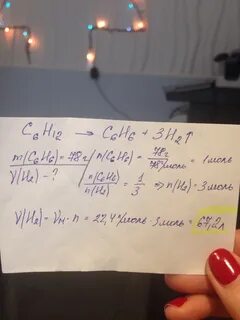 C6H12 → C6H6 + 3H2↑
m(C6H6)=78г / n(C6H6) = 78г / 78г/моль = 1 моль
V(H2) - ? / n(C6H6) / n(H2) = 1 / 3 ⇒ n(H2) = 3 моль
V(H2) = Vм · n = 22,4 л/моль · 3 моль = 67,2 л